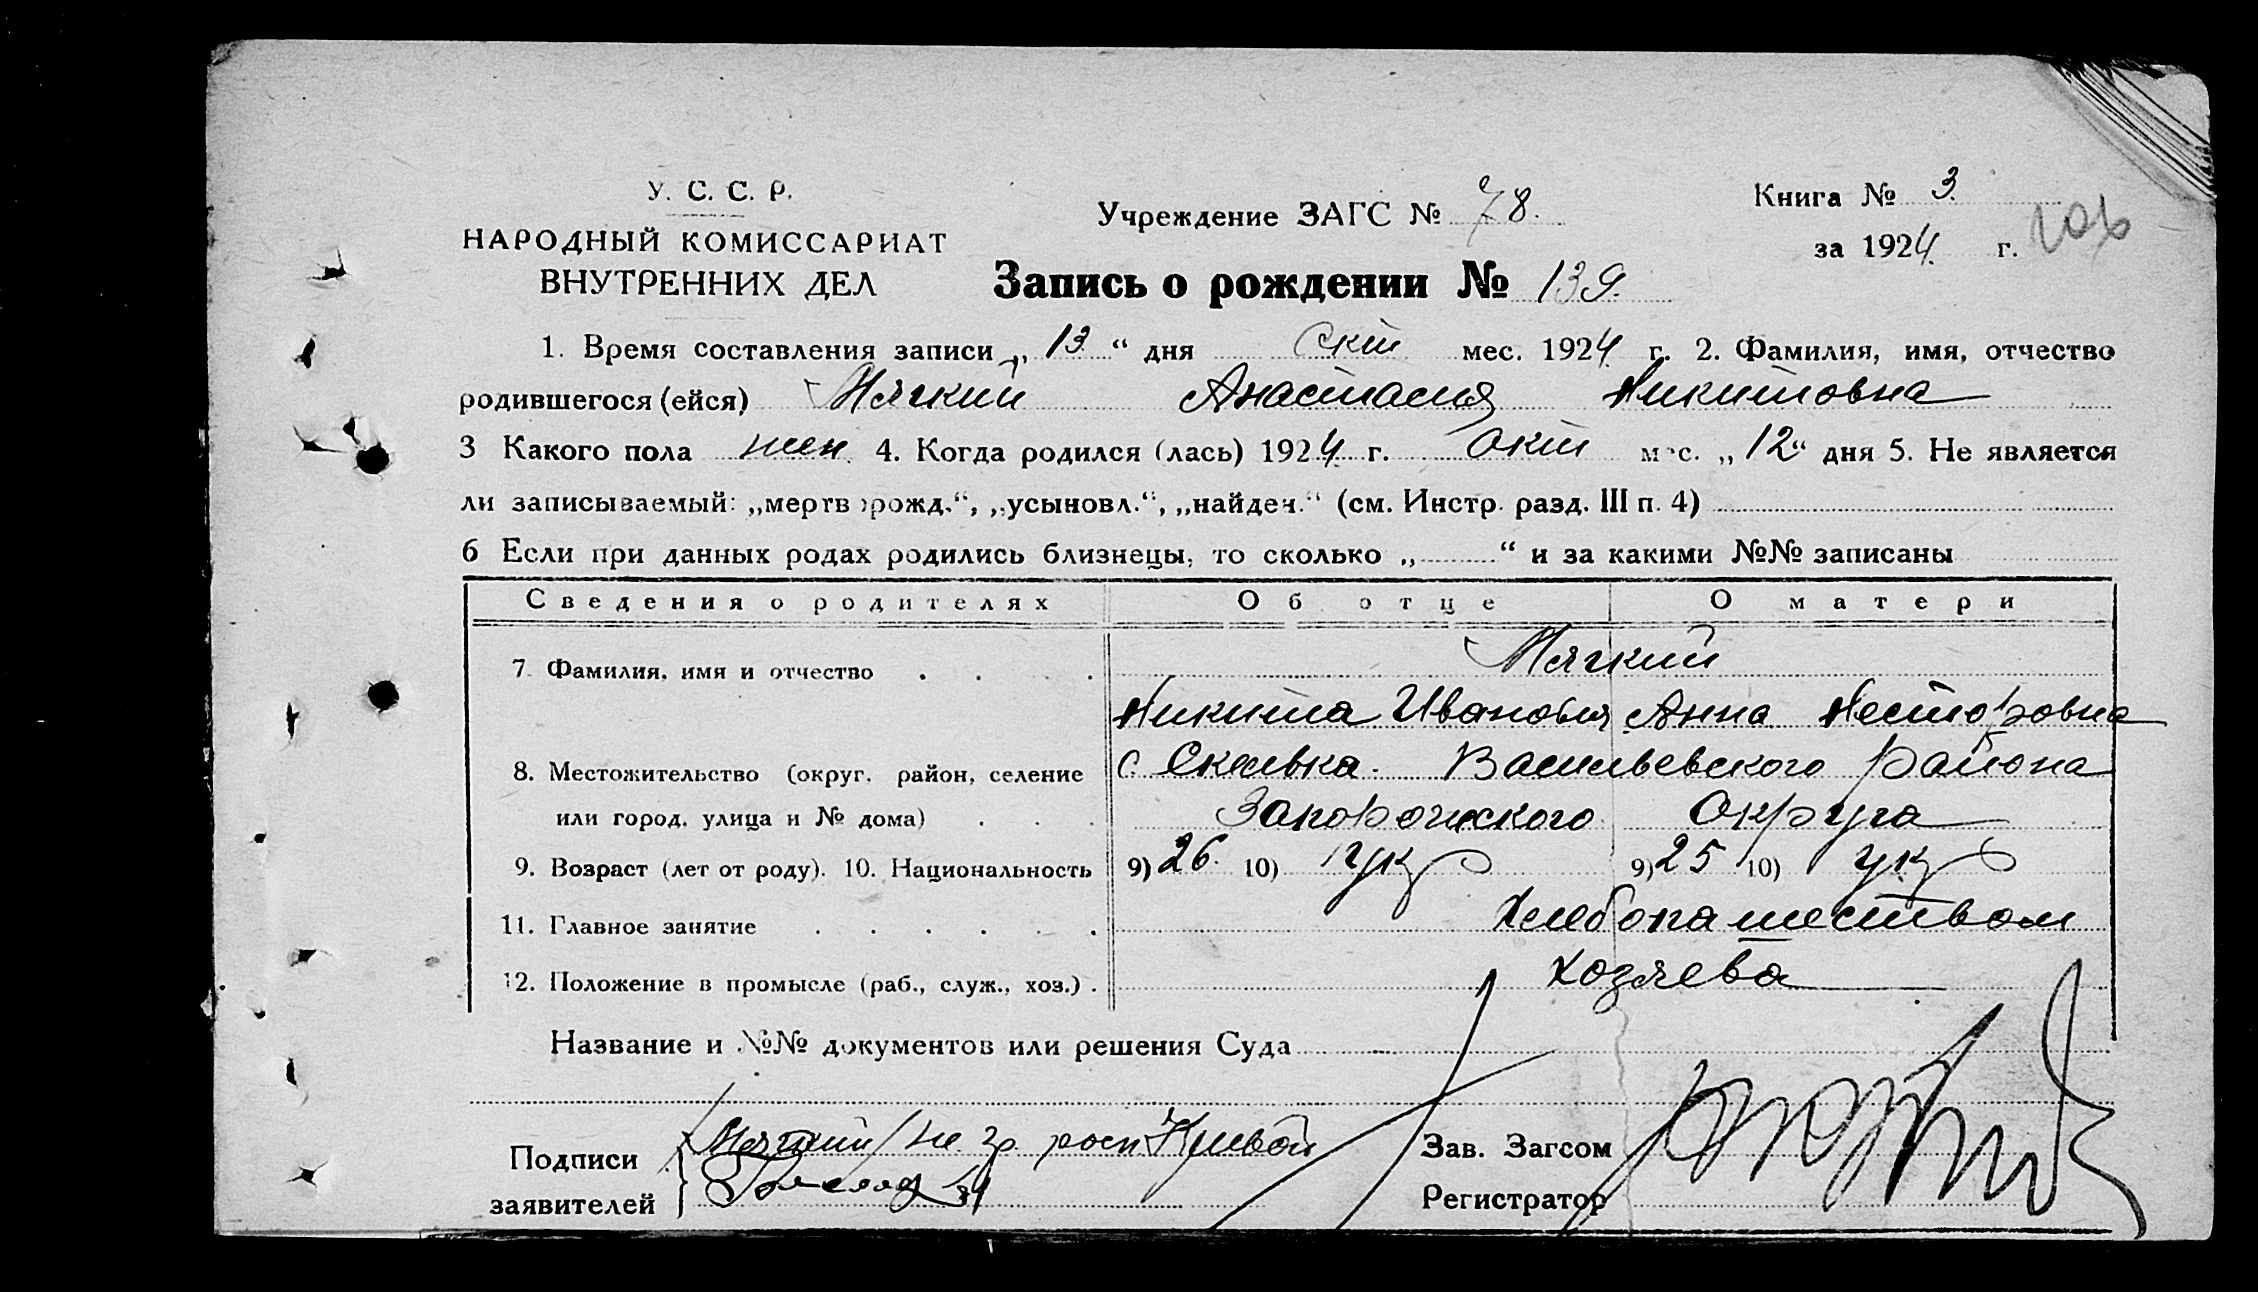 У. С. С. Р.
НАРОДНЫЙ КОМИССАРИАТ
ВНУТРЕННИХ ДЕЛ
Учреждение ЗАГС № 78.
Книга № 3.
за 1924. г.
Запись о рождении № 139.
1. Время составления записи „ 13 “ дня Окт мес. 1924 г. 2. Фамилия, имя, отчество
родившегося (ейся) Мягкий Анастасия Никитовна
3 Какого пола жен. 4. Когда родился (лась) 1924 г. Окт мес. „ 12 “ дня 5. Не является
ли записываемый: „мертворожд.“, „усыновл.“, „найден.“ (см. Инстр. разд. III п. 4)
6 Если при данных родах родились близнецы, то сколько „ “ и за какими №№ записаны
Сведения о родителях Об отце О матери
7. Фамилия, имя и отчество Мягкий
Никита Иванович Анна Несторовна
8. Местожительство (округ, район, селение с. Скелька. Васильевского района
или город, улица и № дома) Запорожского Округа
9. Возраст (лет от роду). 10. Национальность 9) 26. 10) Укр 9) 25 10) Укр
11. Главное занятие Хлебопашеством
12. Положение в промысле (раб., служ., хоз.) Хозяева
Название и №№ документов или решения Суда
Подписи Мягкий не гр. росп
заявителей
Зав. Загсом
Регистратор